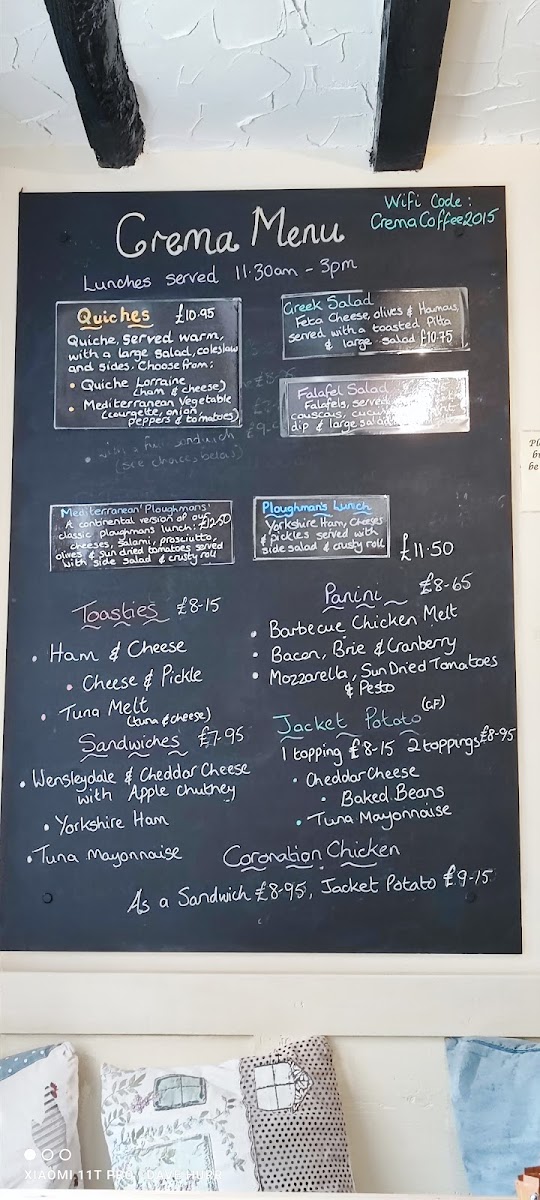 Wifi Code :
CremaCoffee2015
Crema Menu
Lunches served 11.30am - 3pm
Quiches £10.95
Quiche, served warm,
with a large salad, coleslaw
and sides. Choose from;
• Quiche Lorraine
(ham & cheese)
• Mediterranean Vegetable
(courgette, onion,
peppers & tomatoes)
Greek Salad
Feta Cheese, olives & Houmous,
served with a toasted Pitta
& large salad £10.75
Falafel Salad
Falafels, served
couscous,
dip & large salad
(see choices below)
Mediterranean 'Ploughmans'
A continental version of our
classic ploughman's lunch: £12.50
cheeses, salami, prosciutto,
olives & sun dried tomatoes served
with side salad & crusty roll
Ploughman's Lunch
Yorkshire Ham, Cheeses
& pickles served with
side salad & crusty roll
£11.50
Toasties £8-15
• Ham & Cheese
• Cheese & Pickle
• Tuna Melt
(tuna & cheese)
Panini £8-65
• Barbecue Chicken Melt
• Bacon, Brie & Cranberry
• Mozzarella, Sun Dried Tomatoes
& Pesto
Sandwiches £7.95
• Wensleydale & Cheddar Cheese
with Apple Chutney
• Yorkshire Ham
• Tuna Mayonnaise
Jacket Potato (GF)
1 topping £8-15 2 toppings £8-95
• Cheddar Cheese
• Baked Beans
• Tuna Mayonnaise
Coronation Chicken
As a Sandwich £8-95, Jacket Potato £9-15
XIAOMI 11T PRO | DAVE HURR